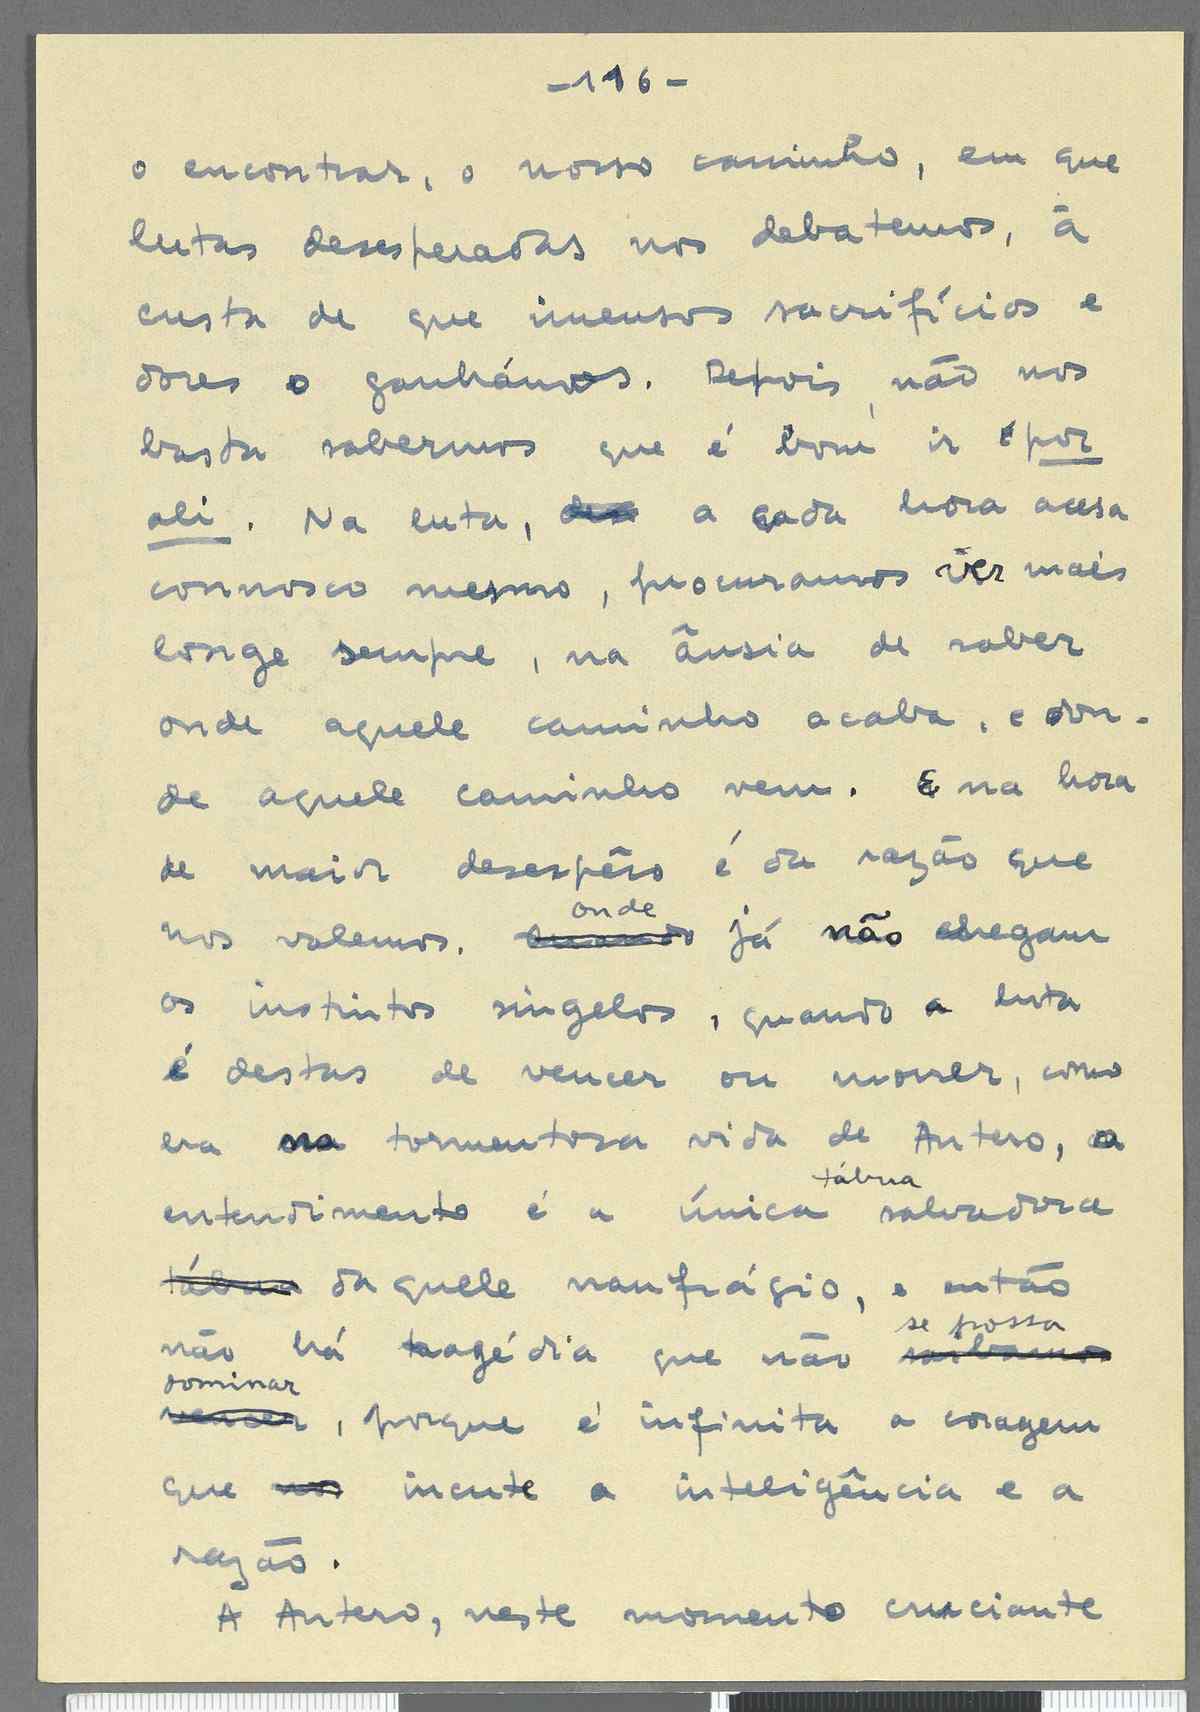 -116-
o encontrar, o nosso caminho, em que
lutas desesperadas nos debatemos, à
custa de que imensos sacrifícios e
dores o ganhámos. Depois, não nos
basta sabermos que é bom ir por
ali. Na luta, a cada hora acesa
connosco mesmo, procuramos ver mais
longe sempre, na ânsia de saber
onde aquele caminho acaba, e don-
de aquele caminho vem. E na hora
de maior desespêro é da razão que
nos valemos. onde já não chegam
os instintos singelos, quando a luta
é destas de vencer ou morrer, como
era na tormentosa vida de Antero, o
entendimento é a única tábua salvadora
tábua daquele naufrágio, e então
não há tragédia que não se possa saibamos
dominar vencer, porque é infinita a coragem
que nos incute a inteligência e a
razão.
A Antero, neste momento cruciante